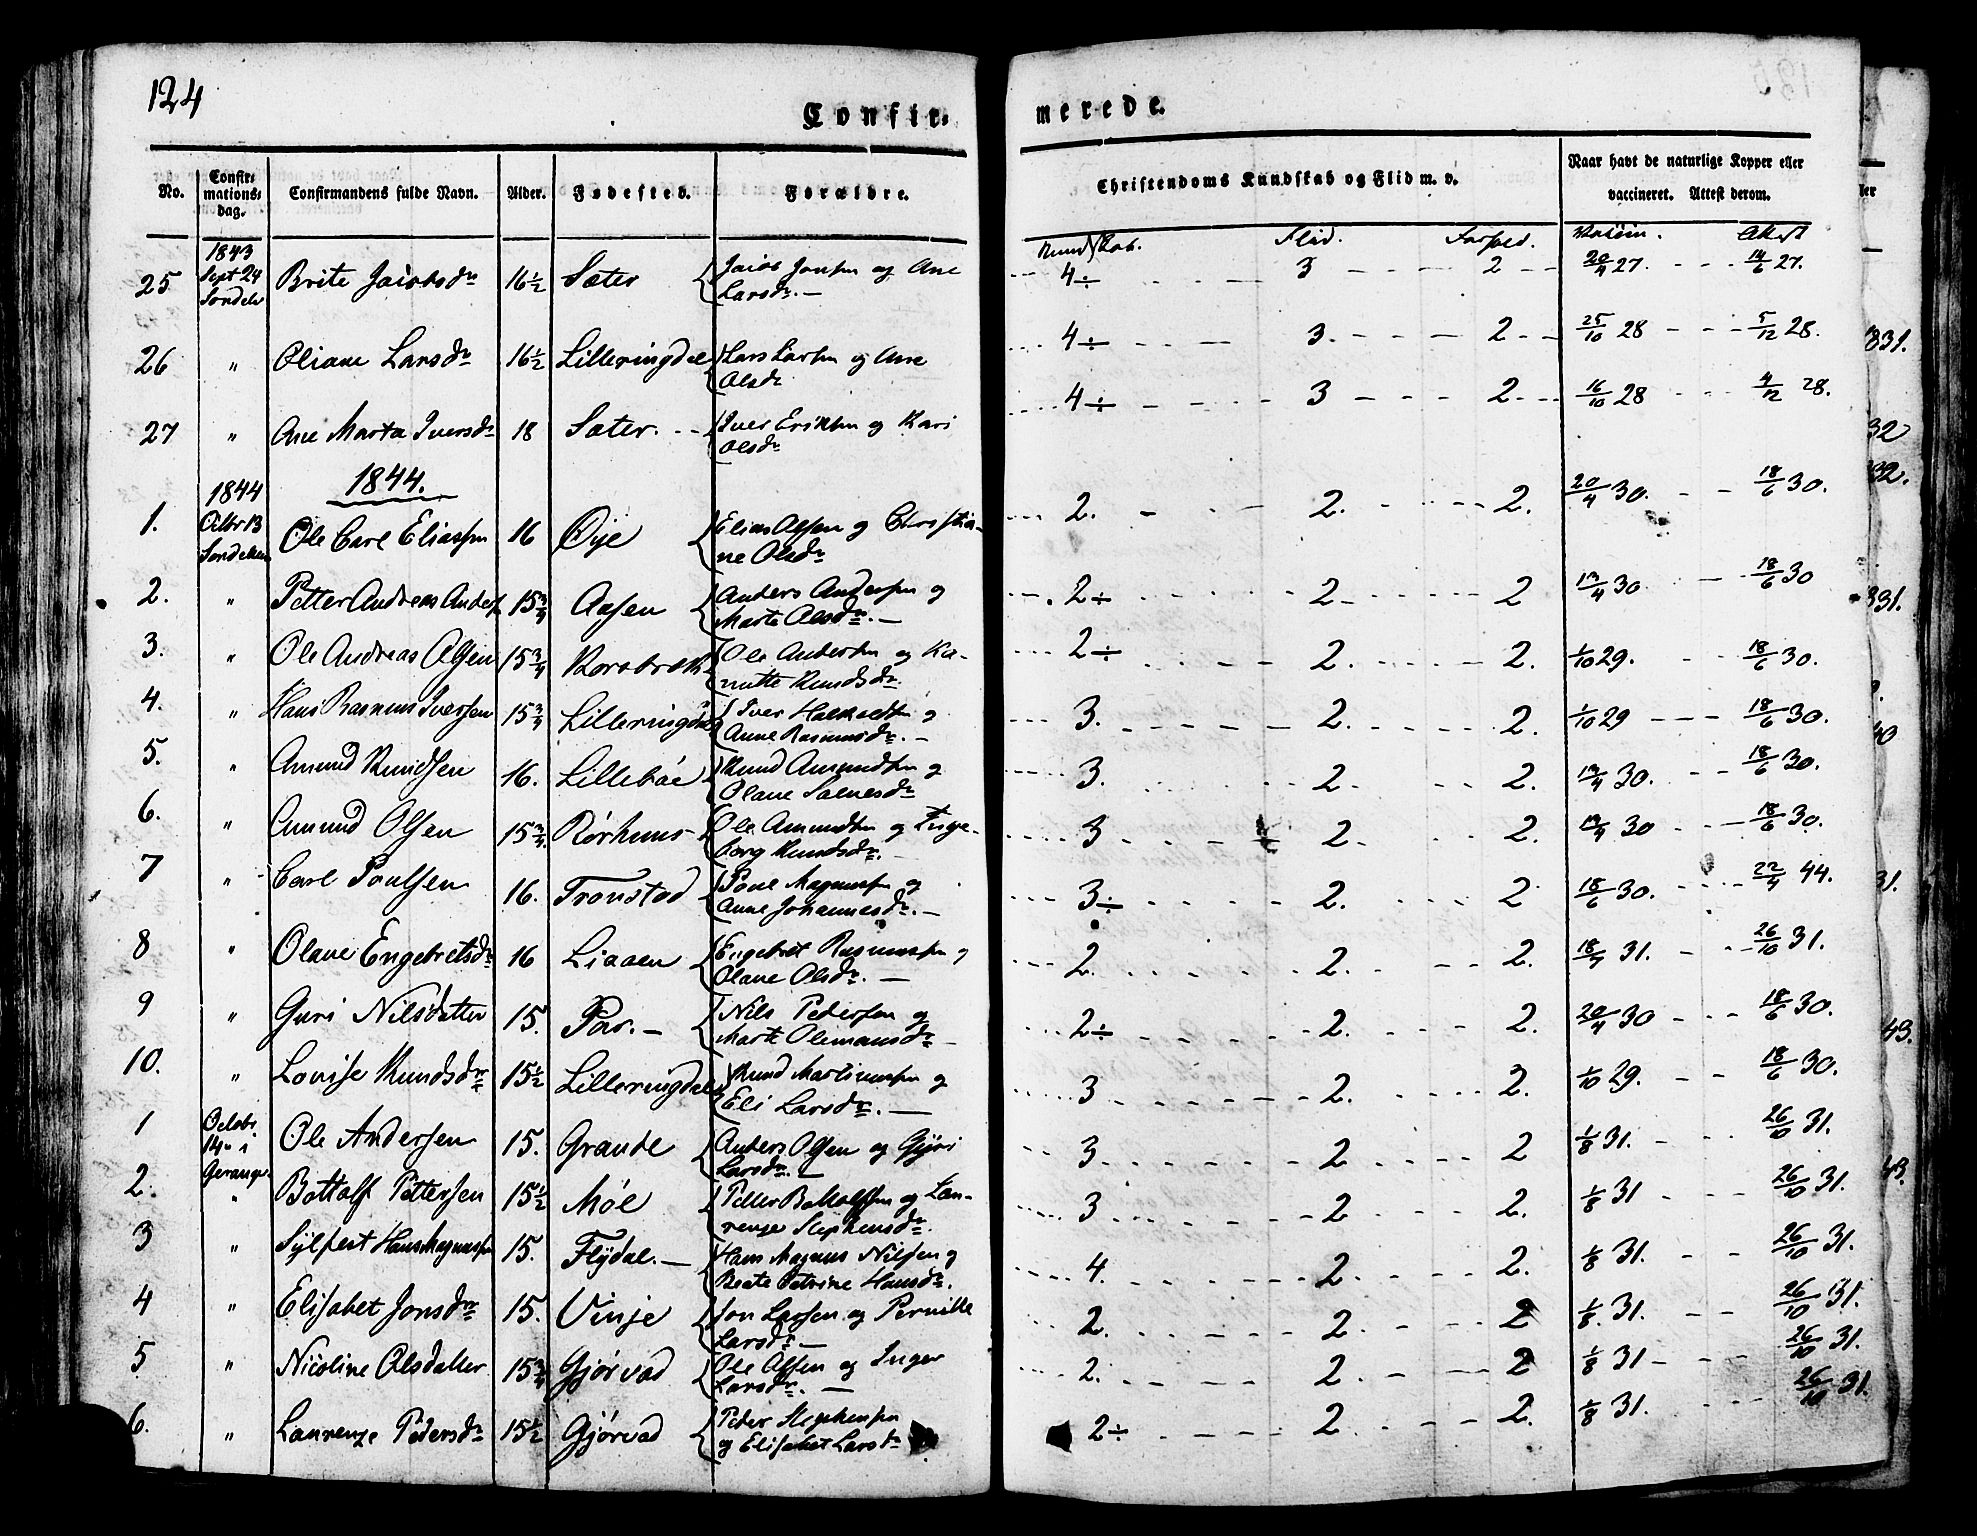 124
Confir-
merede.
No. Confirmationsdag. Confirmandens fulde Navn. Alder. Fødested. Forældre. Christendoms Kundskab og Flid m. v. Naar havt de naturlige Kopper eller vaccineret. Attest derom.
Kundskab. Flid. Forhold. Vaccin. Attest
25 1843 Sept 24 Brite Jacobsdr 16½ Sæter Jacob Jonsen og Ane Larsdr. 4÷ 3 2 20/4 27. 14/6 27.
26 " Oliane Larsdr 16½ Lilleringdal Lars Larsen og Ane Olsdr 4÷ 3. 2 25/10 28 5/12 28.
27 " Ane Marta Iversdr 18 Sæter. Iver Eriksen og Kari Olsdr 4÷ 3 2 16/10 28 4/12 28.
1844.
1. 1844 Octbr 13 Ole Carl Eliassen 16 Øije Elias Olsen og Christiane Olsdr 2. 2. 2. 20/4 30. 18/6 30.
2. " Petter Andreas Anders 15¾ Aasen Anders Andersen og Marte Olsdr. 2÷ 2 2 30 18/6 30
3. " Ole Andreas Olsen 15¾ Korsbrek Ole Andersen og Kanutte Knudsdr. 2÷ 2. 2. 1/10 29. 18/6 30.
4. " Hans Rasmus Iversen 15¾ Lilleringdal Iver og Anne Rasmusdr. 3. 2. 2. 1/10 29 18/6 30.
5. " Amund Knudsen 16. Lillebøe Knud Amundsen og Olane 3. 2. 2. 30. 18/6 30.
6. " Amund Olsen 15¾ Rørhuus Ole Amundsen og Ingeborg Knudsdr. 3 2. 2. 30 18/6 30.
7 " Carl Poulsen 16. Tronstad Poul Magnussen og Anne Johannesdr. 3÷ 2. 2 18/6 30. 22/4 44.
8 " Olane Engebretsdr 16 Liaaen Engebret Rasmussen og Olane Olsdr. 2. 2. 2. 31. 26/10 31.
9 " Guri Nilsdatter 15. Par. Nils Pedersen og Marte Olemansdr. 2÷ 2. 2. 20/4 30 18/6 30.
10. " Lovise Knudsdr 15½ Lilleringdal Knud Martinussen og Eli Larsdr. 3 2. 2. 1/10 29. 18/6 30.
1 Octobr 14de i Geranger Ole Andersen 15. Grande Anders Olsen og Gjøri Larsdr. 3. 2 2 1/8 31. 26/10 31.
2. " Bottolf Pettersen 15½ Møe Petter Bottolfsen og Laurenze Stephensdr. 3 2 2. 1/8 31 26/10 31.
3 " Sylfest Hans Magnussen 15. Flydal. Hans Magnus Nilsen og Beate Petrine Hansdr. 4. 2. 2. 1/8 31. 26/10 31.
4 " Elisabet Jonsdr 15. Vinje Jon Larsen og Pernille Larsdr 2. 2. 2 1/8. 31. 26/10 31.
5 " Nicoline Olsdatter 15¾ Gjørvad Ole Olsen og Inger Larsdr. 2. 2 2 1/8 31 26/10 31.
6. " Laurenze Pedersdr 15½ Gjørvad Peder Stephensen og Elisabet Larsdr 2÷ 2 2. 1/8 31. 26/10 31.